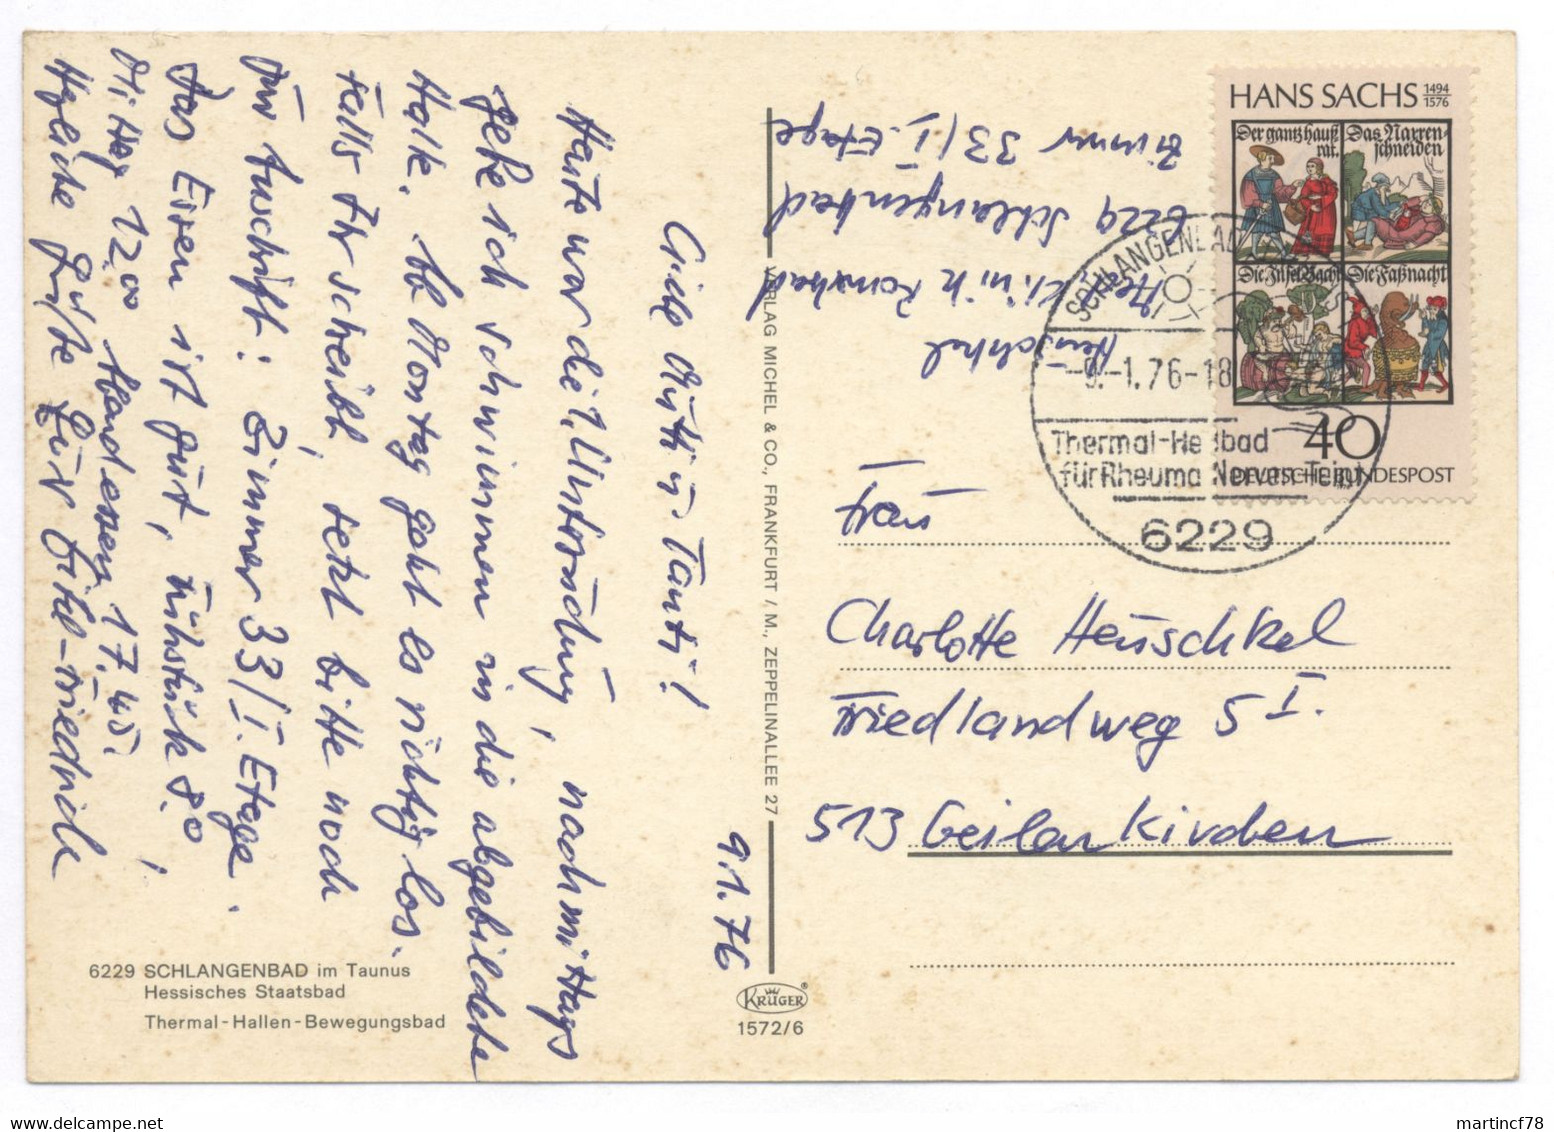 9.1.76
Liebe Mutti u. Tanti!
Heute war die 1. Untersuchung, nachmittags
gehe ich schwimmen in die abgebildete
Halle. Ab Montag geht es richtig los.
Falls Ihr schreibt, setzt bitte noch
zur Anschrift: Zimmer 33/I. Etage.
Das Essen ist gut, Frühstück 8.00
Mittag 12.00 Abendessen 17.45!
Herzliche Grüße Euer Eitel-Friedrich
6229 SCHLANGENBAD im Taunus
Hessisches Staatsbad
Thermal-Hallen-Bewegungsbad
VERLAG MICHEL & CO., FRANKFURT / M., ZEPPELINALLEE 27
KRÜGER
1572/6
Heuschkel
Klinik
6229 Schlangenbad
Zimmer 33/I. Etage
HANS SACHS 1494 1576
Der gantz hauszrat.
Das Narrenschneiden
Die Insel Bachi
Die Faßnacht
40
DEUTSCHE BUNDESPOST
SCHLANGENBAD
-9.-1.76-18
Thermal-Heilbad
für Rheuma Nerven Teint
6229
Frau
Charlotte Heuschkel
Friedlandweg 5 I.
513 Geilenkirchen
martincf78